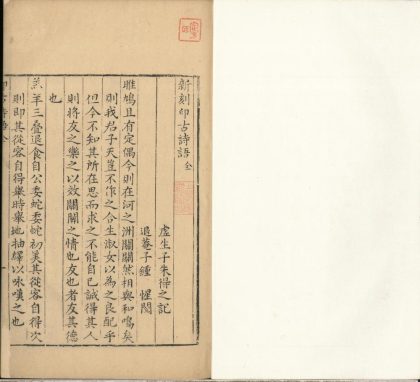 新刻印古詩語全
虛生子朱得之記
退菴子鍾惺閱
雎鳩且有定偶今則在河之洲關關然相與和鳴矣
則我君子天豈不作之合生淑女以為之良配乎
但今不知其所在思而求之不能自已誠得其人
則將友之樂之以效關關之情也友也者友其德
也
羔羊三疊退食自公委蛇委蛇初美其從容自得次
則即其從容自得無時無地抽繹以咏嘆之也